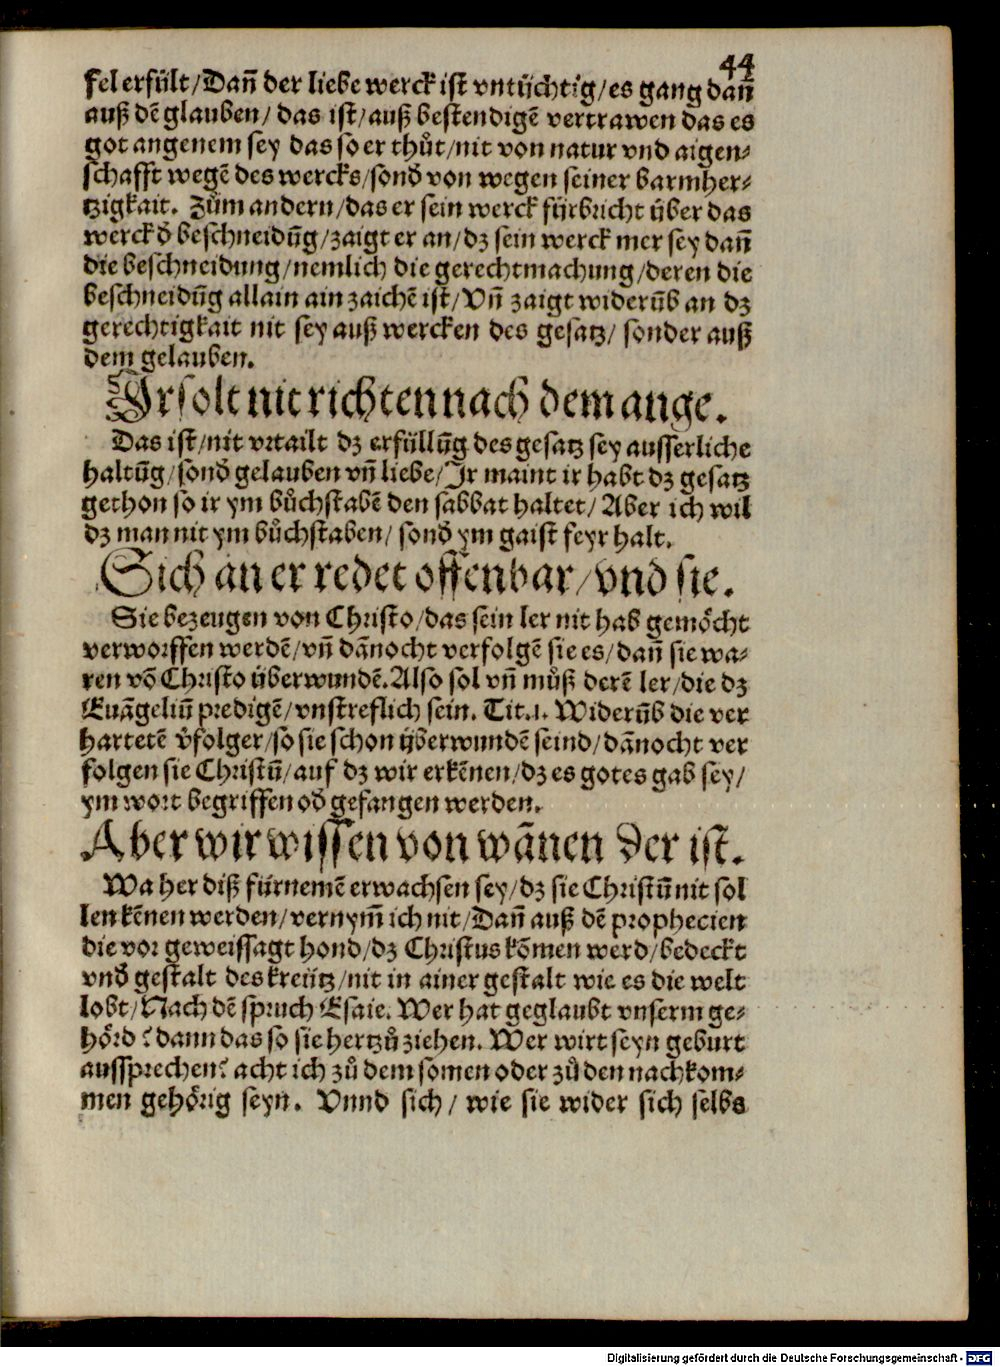 44
fel erfült/Dañ der liebe werck ist vntüchtig/es gang dañ
auß dē glauben/ das ist/auß bestendigē vertrawen das es
got angenem sey das so er thůt/nit von natur vnd aigen⸗
schafft wegē des wercks/sonđ von wegen seiner barmher⸗
tzigkait. Zům andern/das er sein werck fürbricht über das
werck đ beschneidūg/zaigt er an/dz sein werck mer sey dañ
die beschneidung/nemlich die gerechtmachung/deren die
beschneidūg allain ain zaichē ist/Vñ zaigt widerūb an dz
gerechtigkait nit sey auß wercken des gesatz/ sonder auß
dem gelauben.
Ir solt nit richten nach dem auge.
Das ist/nit vrtailt dz erfüllūg des gesatz sey ausserliche
haltūg/sonđ gelauben vñ liebe/Ir maint ir habt dz gesatz
gethon so ir ym bůchstabē den sabbat haltet/ Aber ich wil
dz man nit ym bůchstaben/ sonđ ym gaist feyr halt.
Sich an er redet offenbar/vnd sie.
Sie bezeugen von Christo/das sein ler nit hab gemöcht
verworffen werdē/vñ dānocht verfolgē sie es/dañ sie wa⸗
ren vō Christo überwundē.Also sol vñ můß derē ler/die dz
Euāgeliū predigē/vnstreflich sein. Tit.1. Widerūb die ver
hartetē v̓folger/so sie schon überwundē seind/dānocht ver
folgen sie Christū/auf dz wir erkēnen/dz es gotes gab sey/
ym wort begriffen ođ gefangen werden.
Aber wir wissen von wānen der ist.
Wa her diß fürnemē erwachsen sey/dz sie Christū nit sol
len kēnen werden/vernym̄ ich nit/Dañ auß dē prophecien
die vor geweissagt hond/dz Christus kōmen werd/bedeckt
vnđ gestalt des kreütz/nit in ainer gestalt wie es die welt
lobt/Nach dē spruch Esaie. Wer hat geglaubt vnserm ge⸗
hörd? dann das so sie hertzů ziehen. Wer wirt seyn geburt
aussprechen? acht ich zů dem somen oder zů den nachkom⸗
men gehörig seyn. Vnnd sich/ wie sie wider sich selbs
Digitalisierung gefördert durch die Deutsche Forschungsgemeinschaft - DFG